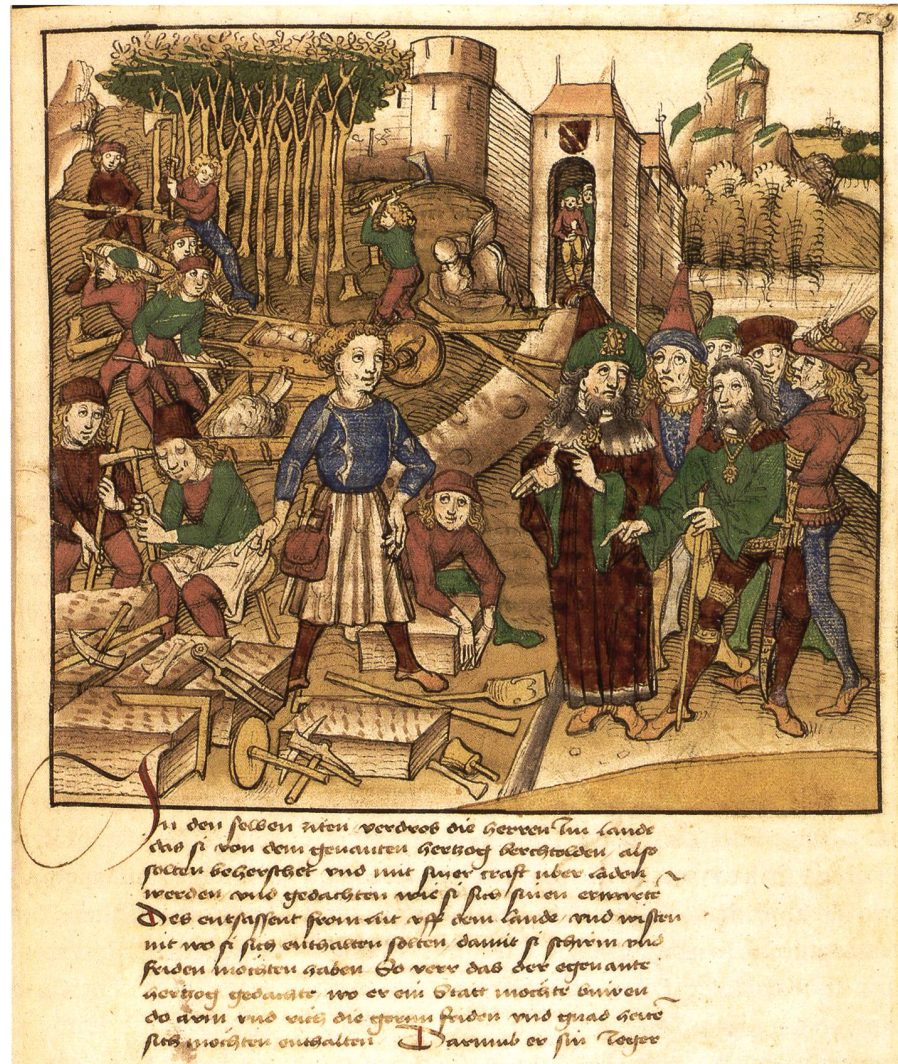 55 9
In den selben ziten verdros die herren im lande
das si von dem genanten hertzog berchtolden also
solten beherschet vnd mit siner craft uber laden
werden vnd gedachten wie si sich sinen erwerte
Des entsassent from lüt vff dem lande vnd wisten
nit wo si sich enthalten solten damit si schirm vnd
friden möchten haben So verr das der egenante
hertzog gedachte wo er ein Statt möchte buwen
do arm vnd rich die gernn friden vnd gnad hette
sich möchten enthalten Darumb er sin Jeger